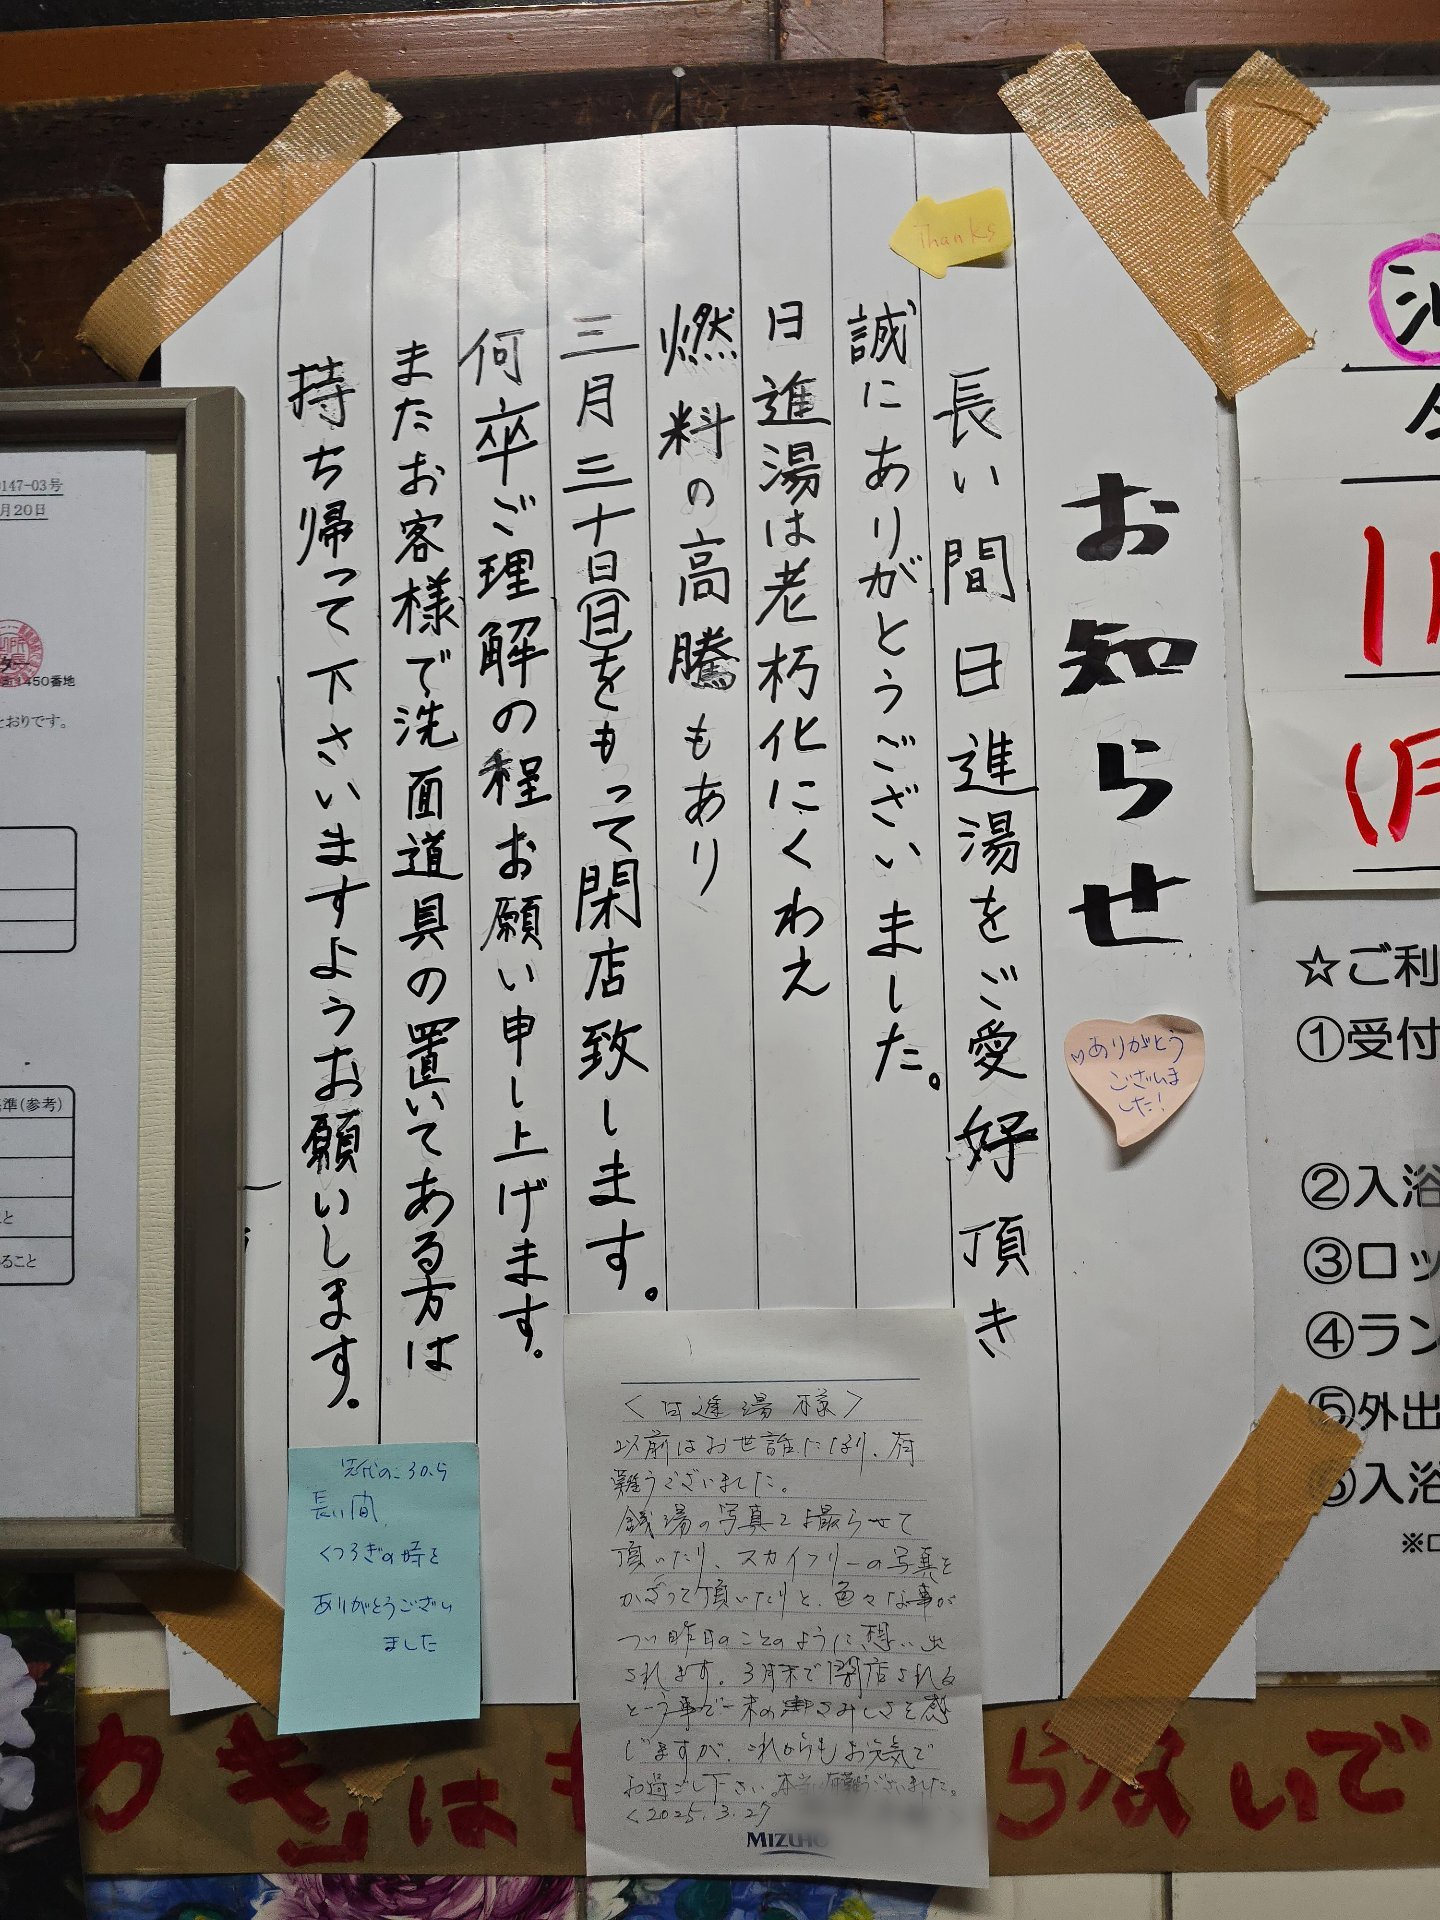 お知らせ
長い間日進湯をご愛好頂き
誠にありがとうございました。
日進湯は老朽化にくわえ
燃料の高騰もあり
三月三十日(日)をもって閉店致します。
何卒ご理解の程お願い申し上げます。
またお客様で洗面道具の置いてある方は
持ち帰って下さいますようお願いします。
Thanks
♡ありがとう
ございま
した!
<日進湯様>
以前はお世話になり、有
難うございました。
銭湯の写真を撮らせて
頂いたり、スカイツリーの写真を
かざって頂いたりと、色々な事が
つい昨日のことのように想い出
されます。3月末で閉店される
という事で一末のさみしさを感
じますが、これからもお元気で
お過ごし下さい。本当に有難うございました。
<2025.3.27
MIZUHO
長い間、
くつろぎの時を
ありがとうござい
ました
147-03号
月20日
ター
1450番地
とおりです。
準(参考)
と
ること
☆ご利
①受付
②入浴
③ロッ
④ラン
⑤外出
⑥入浴
※ロ
11
(月
かき」は
らないで